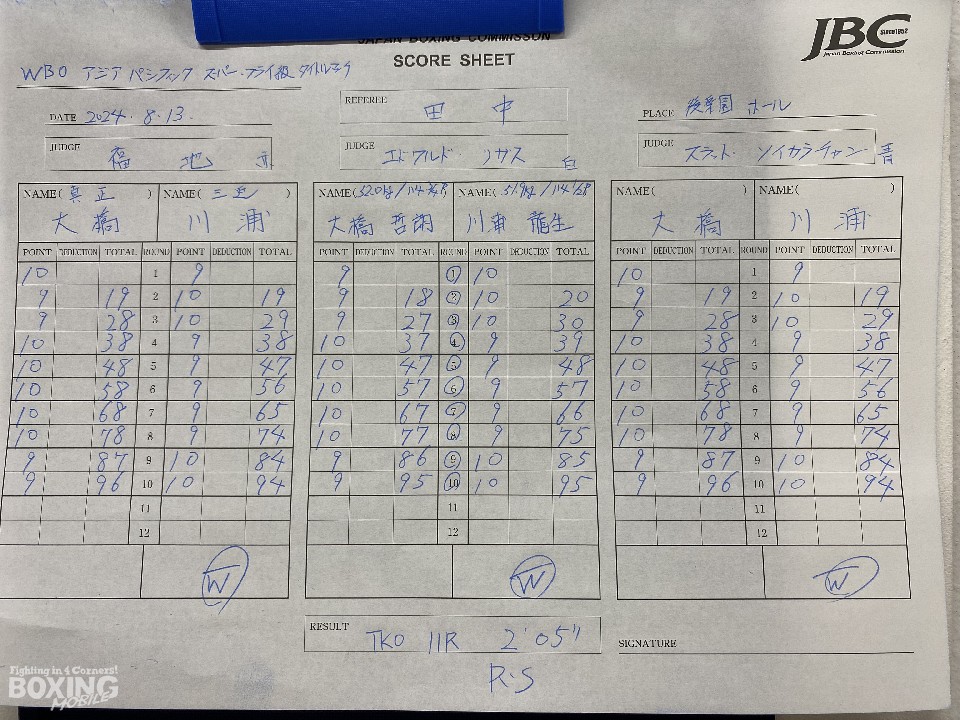 JAPAN BOXING COMMISSON
SCORE SHEET
JBC SINCE1952
Japan Boxing Commission
WBO アジア パシフィック スーパー・フライ級 タイトルマッチ
DATE 2024・8・13. REFEREE 田中 PLACE 後楽園ホール
JUDGE 福地 赤 JUDGE エドワルド・リガス 白 JUDGE スラット・ソイカラチャン・青
NAME(真正) NAME(三迫) NAME( NAME( NAME( ) NAME( )
大橋 川浦 大橋 哲朗 川浦 龍生 大橋 川浦
POINT DEDUCTION TOTAL ROUND POINT DEDUCTION TOTAL POINT DEDUCTION TOTAL ROUND POINT DEDUCTION TOTAL POINT DEDUCTION TOTAL ROUND POINT DEDUCTION TOTAL
10 1 9 9 1 10 10 1 9
9 19 2 10 19 9 18 2 10 20 9 19 2 10 19
9 28 3 10 29 9 27 3 10 30 9 28 3 10 29
10 38 4 9 38 10 37 4 9 39 10 38 4 9 38
10 48 5 9 47 10 47 5 9 48 10 48 5 9 47
10 58 6 9 56 10 57 6 9 57 10 58 6 9 56
10 68 7 9 65 10 67 7 9 66 10 68 7 9 65
10 78 8 9 74 10 77 8 9 75 10 78 8 9 74
9 87 9 10 84 9 86 9 10 85 9 87 9 10 84
9 96 10 10 94 9 95 10 10 95 9 96 10 10 94
11 11 11
12 12 12
W W W
RESULT TKO 11R 2'05" SIGNATURE
R・S
Fighting in 4 Corners!
BOXING
MOBILE